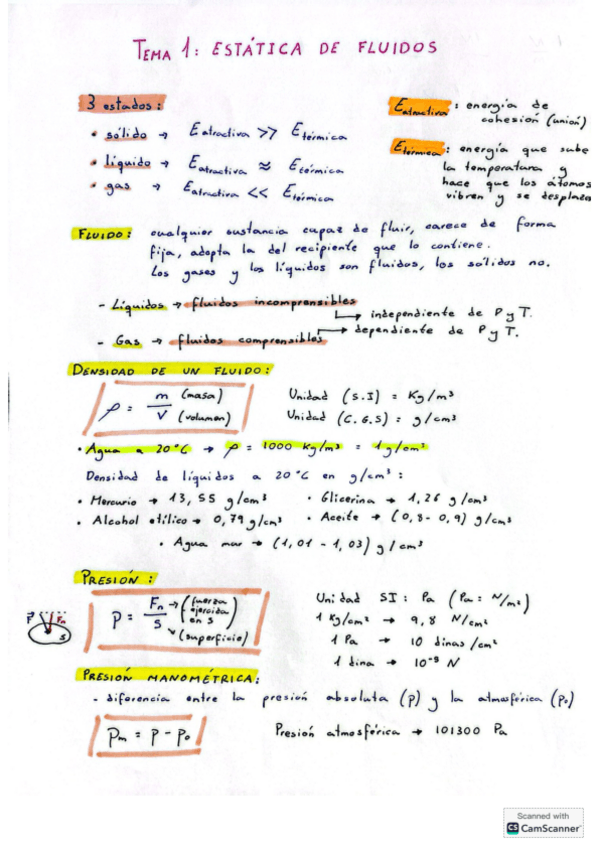 TEMA 1: ESTÁTICA DE FLUIDOS
3 estados:
• sólido → Eatractiva >> Etérmica
• líquido → Eatractiva ≈ Etérmica
• gas → Eatractiva << Etérmica
Eatractiva: energía de
cohesión (unión)
Etérmica: energía que sube
la temperatura y
hace que los átomos
vibren y se desplaza
FLUIDO: cualquier sustancia capaz de fluir, carece de forma
fija, adopta la del recipiente que lo contiene.
Los gases y los líquidos son fluidos, los sólidos no.
- Líquidos → fluidos incomprensibles
↳ independiente de P y T.
- Gas → fluidos comprensibles
→ dependiente de P y T.
DENSIDAD DE UN FLUIDO:
ρ = m (masa) / V (volumen)
Unidad (S.I) = Kg/m³
Unidad (C.G.S) = g/cm³
• Agua a 20°C → ρ = 1000 kg/m³ = 1 g/cm³
Densidad de líquidos a 20°C en g/cm³:
• Mercurio → 13,55 g/cm³ • Glicerina → 1,26 g/cm³
• Alcohol etílico → 0,79 g/cm³ • Aceite → (0,8-0,9) g/cm³
• Agua mar → (1,01 - 1,03) g/cm³
PRESIÓN:
F Fn S
P = Fn → (fuerza ejercida en S) / S → (superficie)
Unidad SI: Pa (Pa = N/m²)
1 Kg/cm² → 9,8 N/cm²
1 Pa → 10 dinas/cm²
1 dina → 10⁻⁵ N
PRESIÓN MANOMÉTRICA:
- diferencia entre la presión absoluta (p) y la atmosférica (p₀)
Pm = P - P₀
Presión atmosférica → 101300 Pa
Scanned with
CS CamScanner